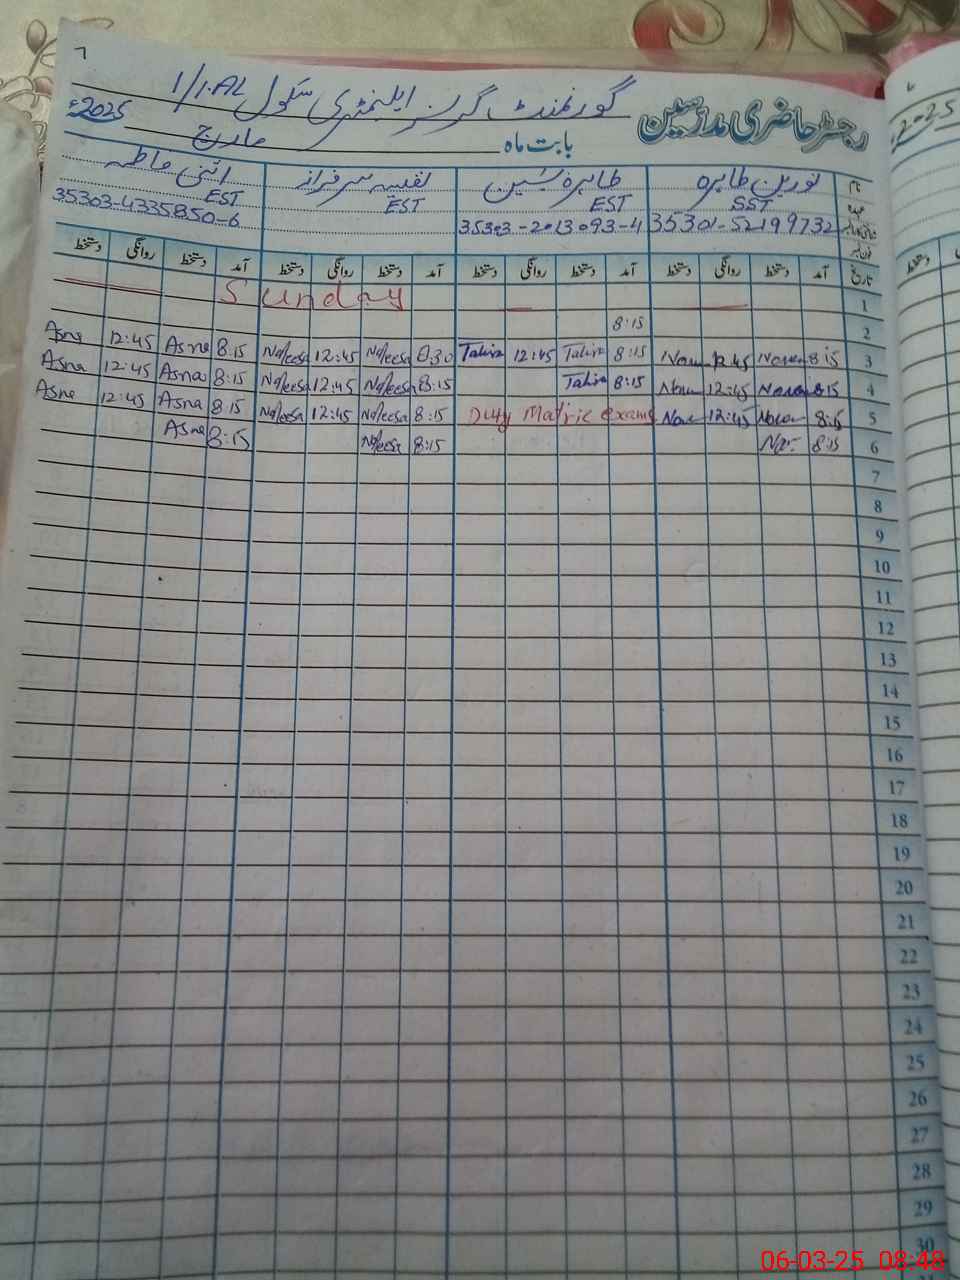 ٦
گورنمنٹ گرلز ایلیمنٹری سکول 1/1.AL
رجسٹر حاضری مدرسین
بابت ماہ مارچ 2025ء
نام نورین طاہرہ طاہرہ یٰسین نفیسہ سرفراز اثنیٰ فاطمہ
عہدہ SST EST EST EST
35301-52199732 35303-2013093-4 35303-4335850-6
تاریخ آمد دستخط روانگی دستخط آمد دستخط روانگی دستخط آمد دستخط روانگی دستخط آمد دستخط روانگی دستخط
1 Sunday
2 8:15
3 8:15 12:45 8:15 Tahira 12:45 Tahira 8:30 Nafeesa 12:45 Nafeesa 8:15 Asna 12:45 Asna
4 8:15 12:45 8:15 Tahira 8:15 Nafeesa 12:45 Nafeesa 8:15 Asna 12:45 Asna
5 8:15 12:45 Duty Matric exams 8:15 Nafeesa 12:45 Nafeesa 8:15 Asna 12:45 Asna
6 8:15 8:15 Nafeesa 8:15 Asna
7
8
9
10
11
12
13
14
15
16
17
18
19
20
21
22
23
24
25
26
27
28
29
30
06-03-25 08:48